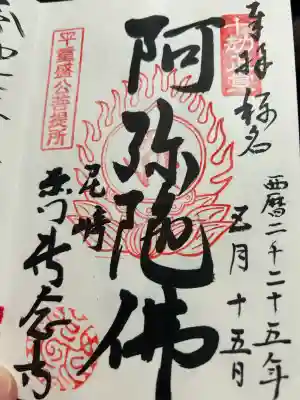 奉拝 称名
西暦二千二十五年
五月十五日
阿弥陀佛
平重盛公菩提所
尼崎
専念寺